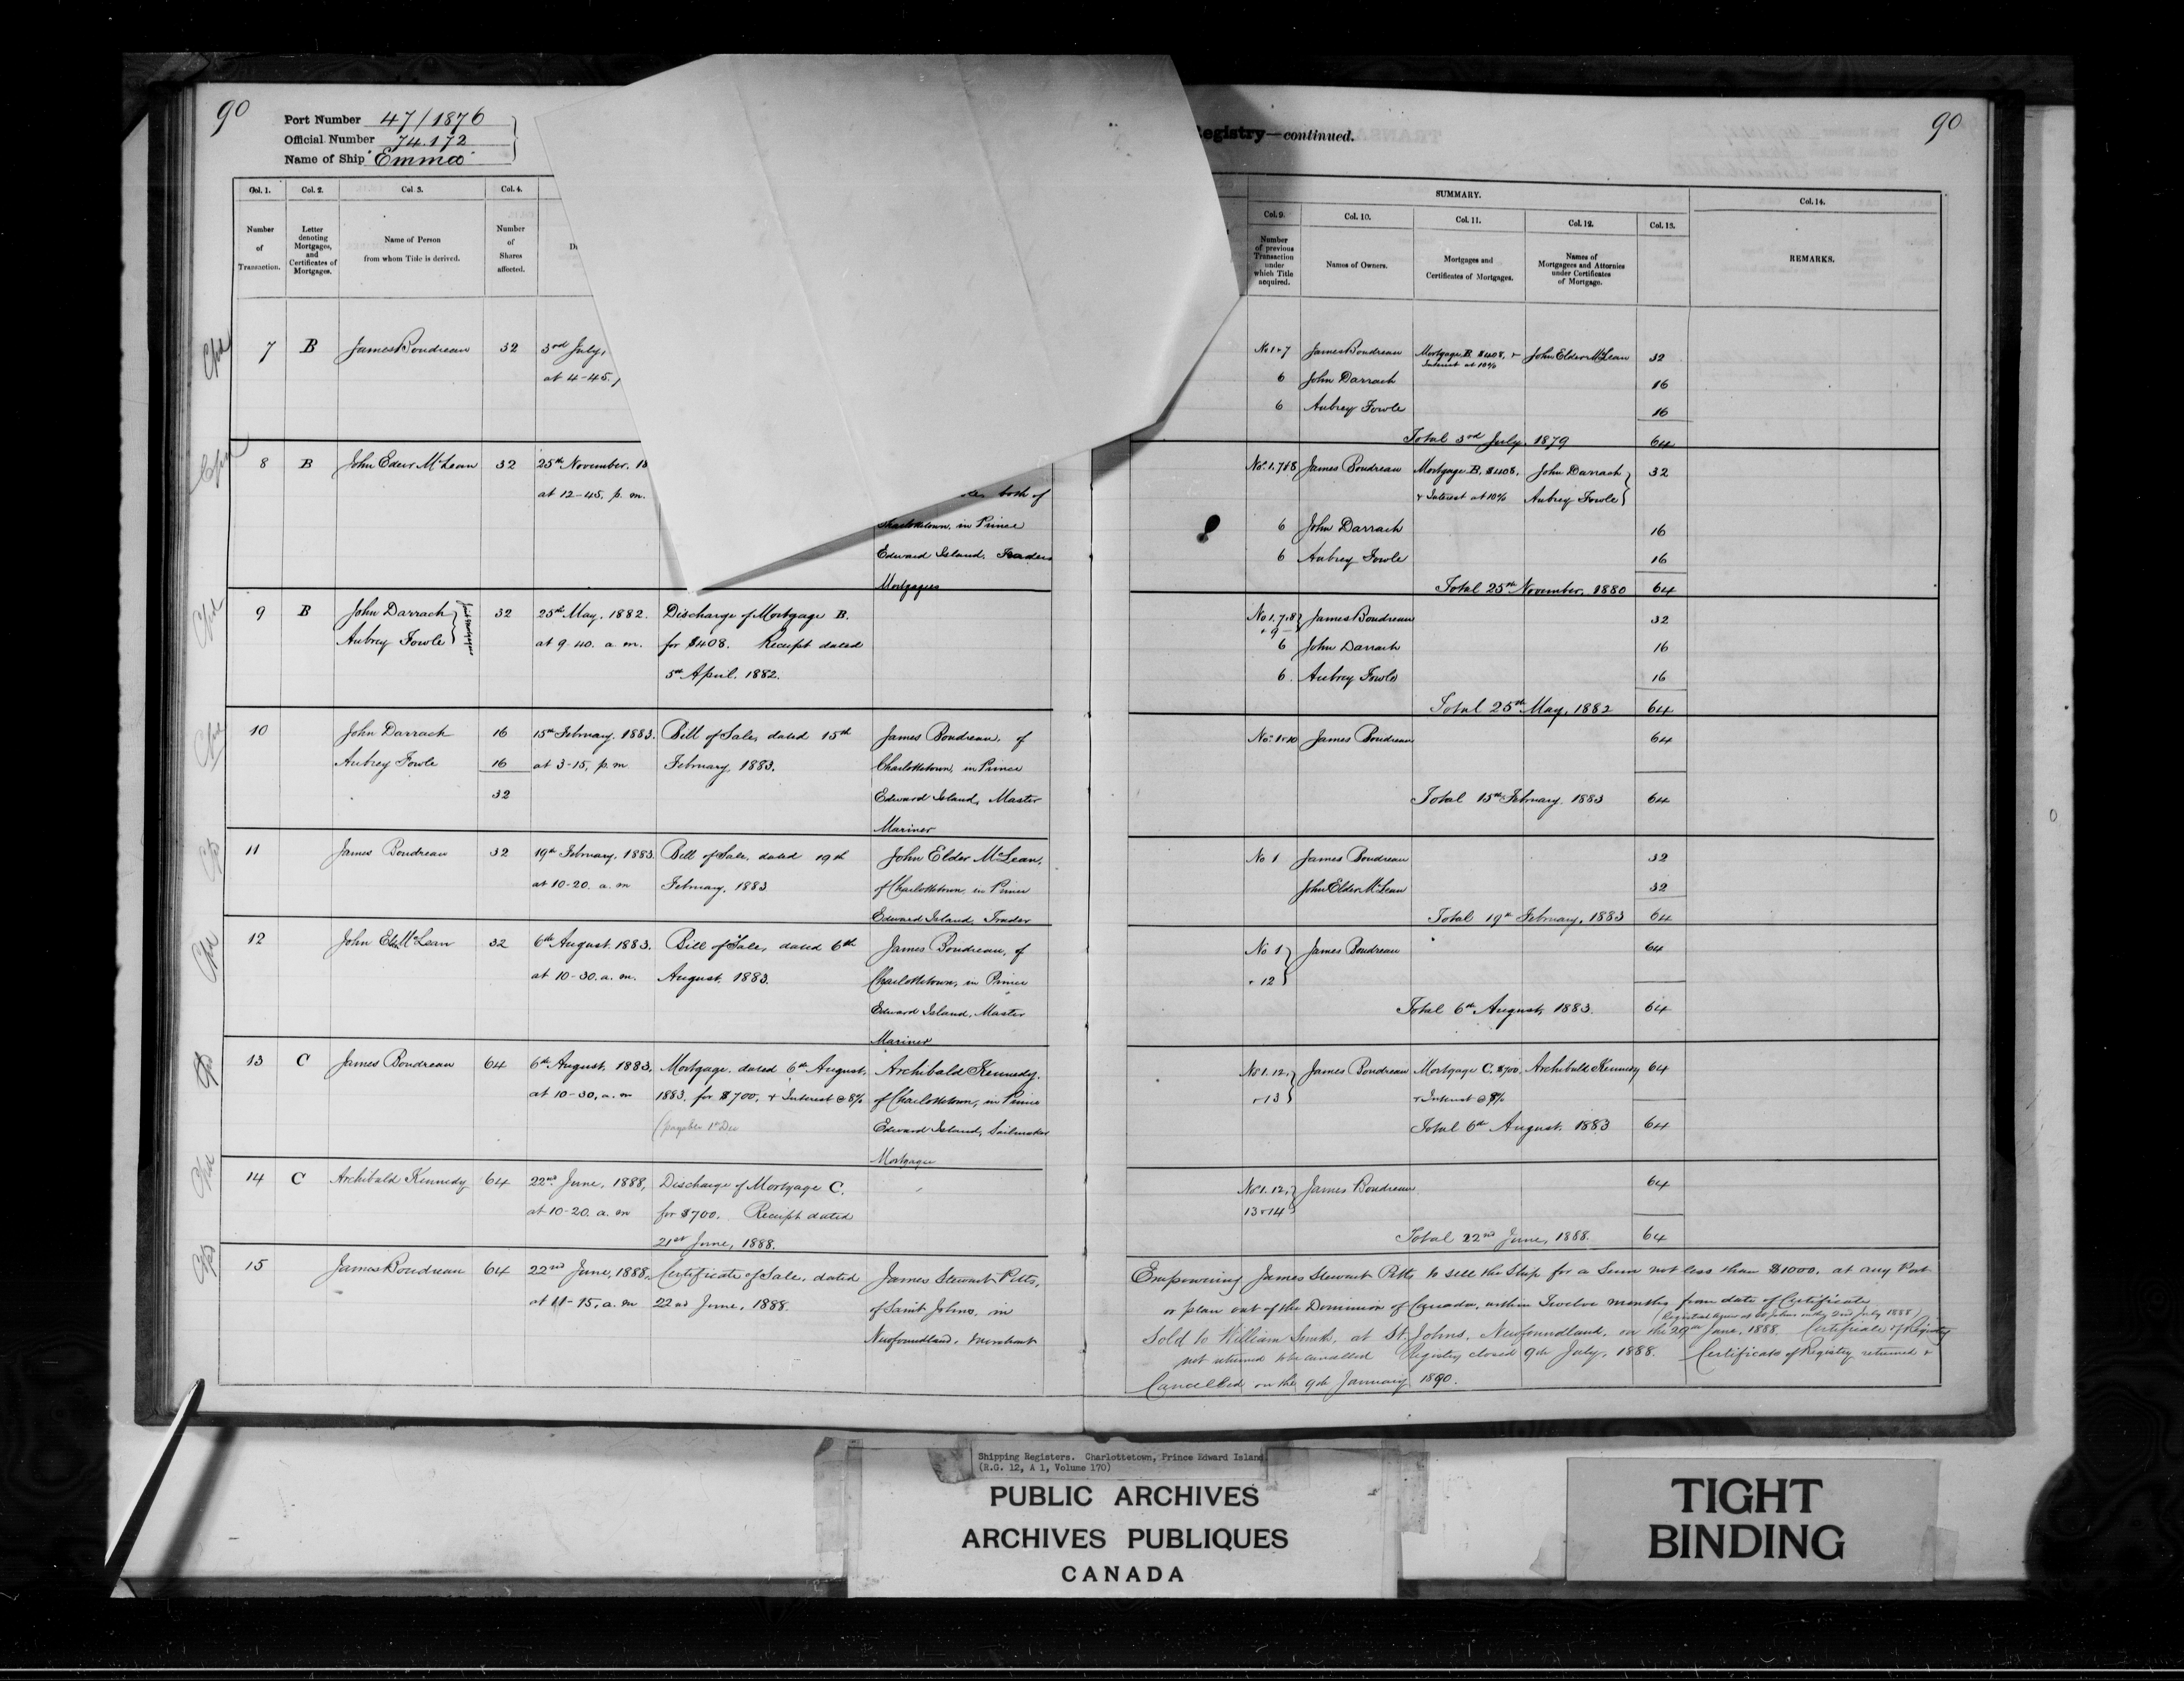 90
90
Port Number 47/1876
Official Number 74.172
Name of Ship "Emma"
Registry—continued.
SUMMARY.
Col. 1. Col. 2. Col 3. Col. 4. Col. 9. Col. 10. Col. 11. Col. 12. Col. 13. Col. 14.
Number of Transaction.
Letter denoting Mortgages, and Certificates of Mortgages.
Name of Person from whom Title is derived.
Number of Shares affected.
Number of previous Transaction under which Title acquired.
Names of Owners.
Mortgages and Certificates of Mortgages.
Names of Mortgagees and Attornies under Certificates of Mortgage.
REMARKS.
7 B James Boudreau 32 3rd July,
at 4-45,
No 1+7 James Boudreau Mortgage B. $408. + John Elder McLean 32
Interest at 10%
6 John Darrach 16
6 Aubrey Fowle 16
Total 3rd July, 1879 64
8 B John Elder McLean 32 25th November, 18
at 12-45, p. m.
both of
Charlottetown, in Prince
Edward Island, Traders
Mortgagees
No. 1, 7+8 James Boudreau Mortgage B. $408. John Darrach 32
+ Interest at 10% Aubrey Fowle
6 John Darrach 16
6 Aubrey Fowle 16
Total 25th November, 1880 64
9 B John Darrach 32 25th May, 1882. Discharge of Mortgage B.
Aubrey Fowle Joint Mortgagees at 9-40. a. m. for $408. Receipt dated
5th April, 1882.
No 1, 7, 8 James Boudreau 32
+ 9
6 John Darrach 16
6. Aubrey Fowle 16
Total 25th May, 1882 64
10 John Darrach 16 15th February, 1883. Bill of Sale, dated 15th James Boudreau, of
Aubrey Fowle 16 at 3-15, p. m February, 1883. Charlottetown, in Prince
32 Edward Island, Master
Mariner
No. 1+10 James Boudreau 64
Total 15th February, 1883 64
11 James Boudreau 32 19th February, 1883. Bill of Sale, dated 19th John Elder McLean,
at 10-20. a. m February, 1883 of Charlottetown, in Prince
Edward Island, Trader
No 1 James Boudreau 32
John Elder McLean 32
Total 19th February, 1883 64
12 John Elder McLean 32 6th August, 1883. Bill of Sale, dated 6th James Boudreau, of
at 10-30. a. m. August, 1883. Charlottetown, in Prince
Edward Island, Master
Mariner
No 1 James Boudreau 64
+ 12
Total 6th August, 1883. 64
13 C James Boudreau 64 6th August, 1883, Mortgage dated 6th August, Archibald Kennedy,
at 10-30, a. m 1883, for $700, + Interest @ 8% of Charlottetown, in Prince
(payable 1st Dec Edward Island, Sailmaker
Mortgagee
No 1. 12, James Boudreau Mortgage C. $700. Archibald Kennedy 64
+13 + Interest @ 8%
Total 6th August, 1883 64
14 C Archibald Kennedy 64 22nd June, 1888, Discharge of Mortgage C,
at 10-20. a. m for $700. Receipt dated
21st June, 1888.
No 1. 12, James Boudreau 64
13+14
Total 22nd June, 1888. 64
15 James Boudreau 64 22nd June, 1888, Certificate of Sale, dated James Stewart Pitts,
at 11-15, a. m 22nd June, 1888. of Saint Johns, in
Newfoundland, Merchant
Empowering James Stewart Pitts, to sell the Ship for a Sum not less than $1000. at any Port
or place out of the Dominion of Canada, within Twelve months, from date of Certificate
(Registered anew at St Johns Nfld 2nd July 1888)
Sold to William Smith, at St. Johns, Newfoundland, on the 29th June, 1888. Certificate of Registry
not returned to be cancelled Registry closed 9th July, 1888. Certificate of Registry returned +
Cancelled, on the 9th January 1890.
Shipping Registers. Charlottetown, Prince Edward Island
(R.G. 12, A 1, Volume 170)
PUBLIC ARCHIVES
ARCHIVES PUBLIQUES
CANADA
TIGHT
BINDING